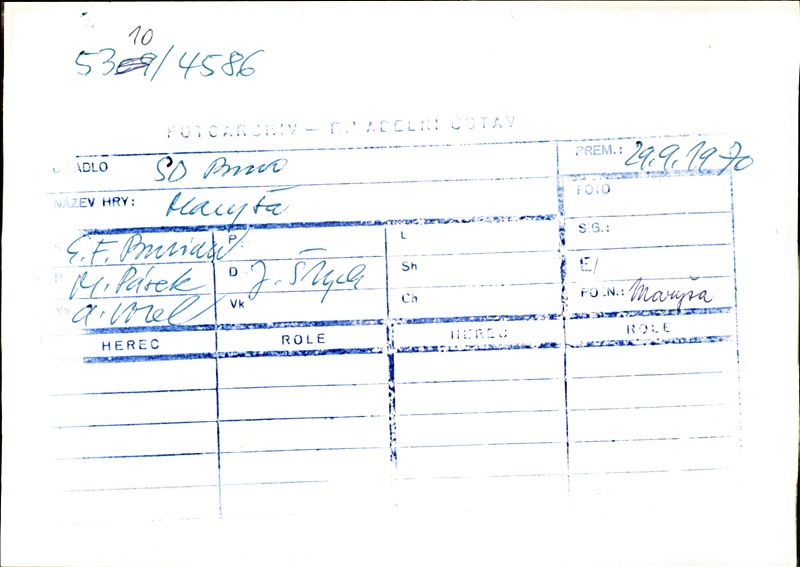 10
53 /4586
FOTOARCHIV — DIVADELNÍ ÚSTAV
DIVADLO SD Brno
PREM.: 29.9.1970
NÁZEV HRY: Maryša
FOTO
E. F. Burian
P
L
S.G.:
M. Pásek
D J. Štych
Sh
E/
A. Vorel
Vk
Ch
POZN.: Maryša
HEREC ROLE HEREC ROLE